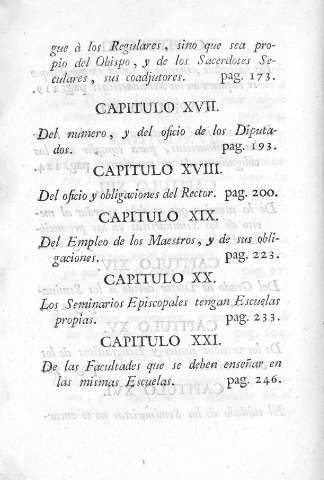 gue à los Regulares, sino que sea pro-
pio del Obispo, y de los Sacerdotes Se-
culares, sus coadjutores. pag. 173.
CAPITULO XVII.
Del numero, y del oficio de los Diputa-
dos. pag. 193.
CAPITULO XVIII.
Del oficio y obligaciones del Rector. pag. 200.
CAPITULO XIX.
Del Empleo de los Maestros, y de sus obli-
gaciones. pag. 223.
CAPITULO XX.
Los Seminarios Episcopales tengan Escuelas
propias. pag. 233.
CAPITULO XXI.
De las Facultades que se deben enseñar en
las mismas Escuelas. pag. 246.